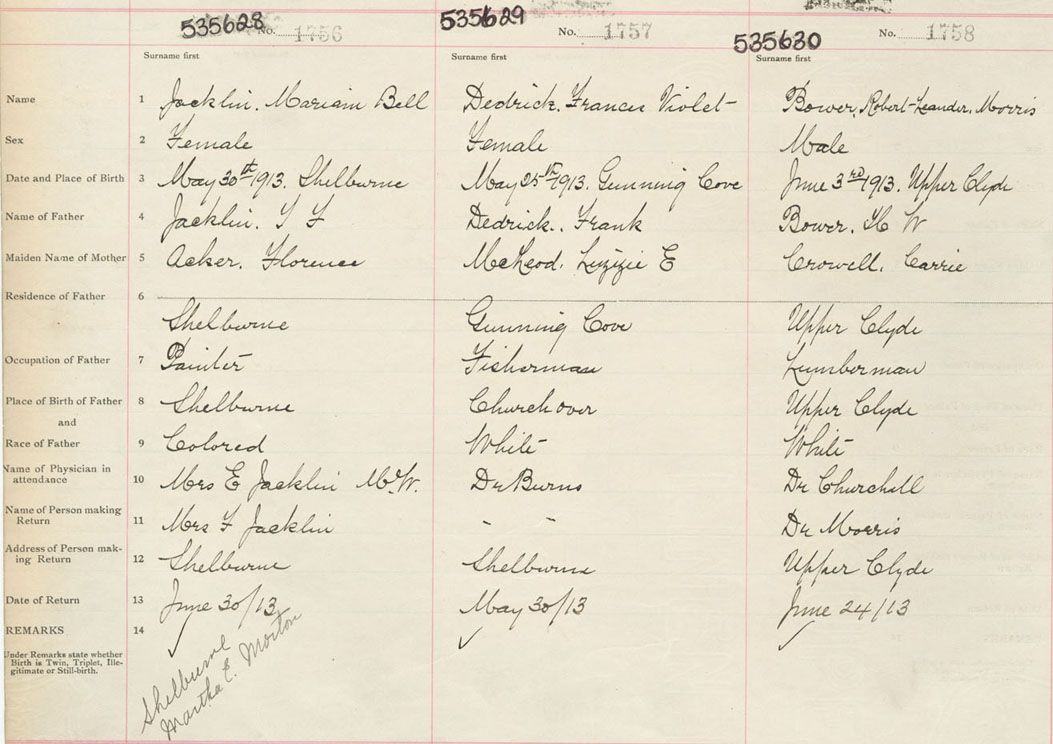 535628 535629 535630
No. 1756 No. 1757 No. 1758
Surname first Surname first Surname first
Name 1 Jacklin. Mariam Bell Dedrick. Frances Violet Bower, Robert Leander, Morris
Sex 2 Female Female Male
Date and Place of Birth 3 May 30th 1913. Shelburne May 25th 1913. Gunning Cove June 3rd 1913. Upper Clyde
Name of Father 4 Jacklin. Dedrick.. Frank Bower. H W
Maiden Name of Mother 5 Acker. Florence McLeod. Lizizie E Crowell. Carrie
Residence of Father 6
Shelburne Gunning Cove Upper Clyde
Occupation of Father 7 Painter Fisherman Lumberman
Place of Birth of Father 8 Shelburne Churchover Upper Clyde
and
Race of Father 9 Colored White White
Name of Physician in
attendance 10 Mrs E Jacklin M.W. Dr Burns Dr Churchill
Name of Person making
Return 11 Mrs F Jacklin " " Dr Morris
Address of Person mak-
ing Return 12 Shelburne Shelburne Upper Clyde
Date of Return 13 June 30/13 May 30/13 June 24/13
REMARKS 14
Under Remarks state whether
Birth is Twin, Triplet, Ille-
gitimate or Still-birth.
Shelburne
Martha E. Morton